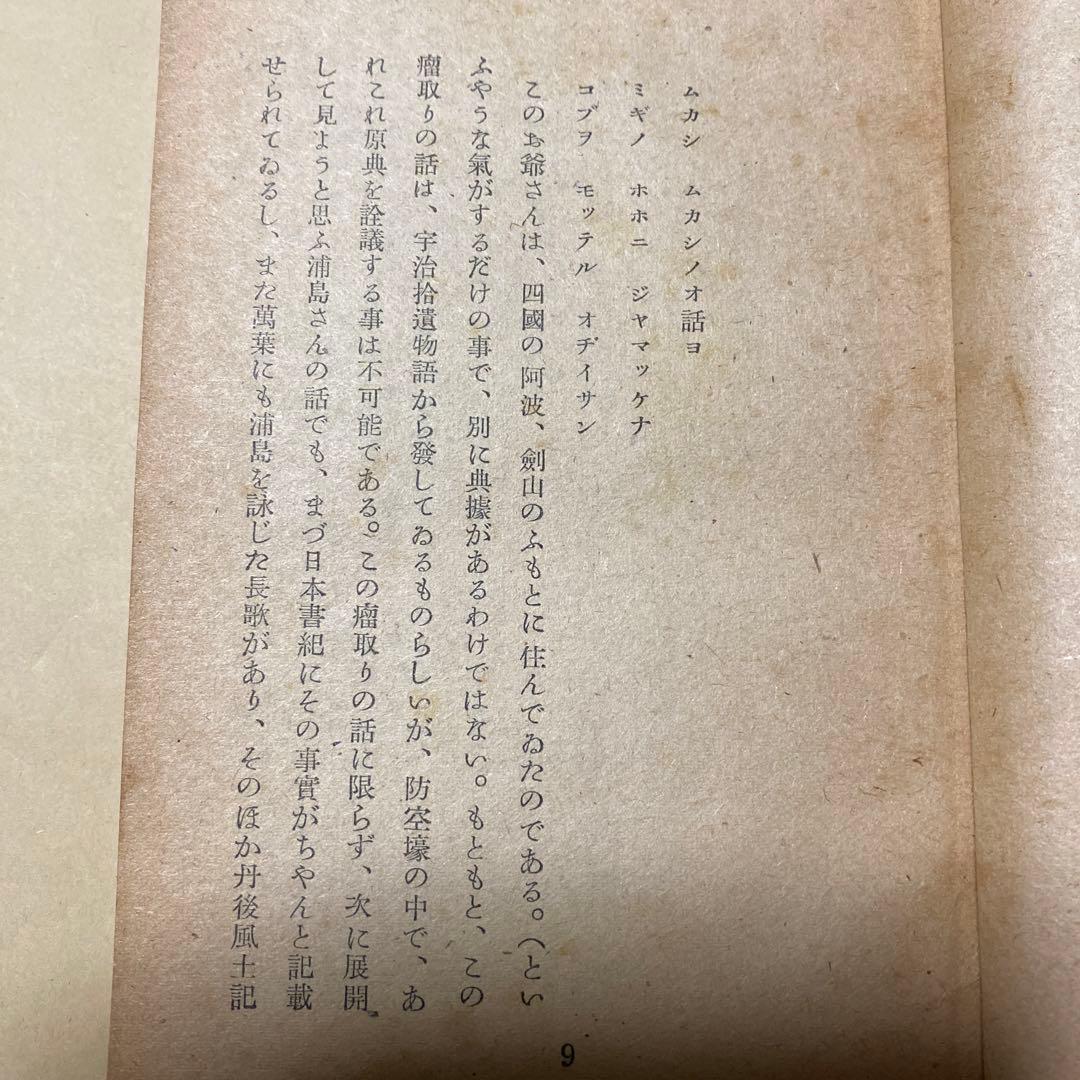 ムカシ ムカシノオ話ヨ
ミギノ ホホニ ジヤマッケナ
コブヲ モッテル オヂイサン
このお爺さんは、四國の阿波、劍山のふもとに住んでゐたのである。(とい
ふやうな氣がするだけの事で、別に典據があるわけではない。もともと、この
瘤取りの話は、宇治拾遺物語から發してゐるものらしいが、防空壕の中で、あ
れこれ原典を詮議する事は不可能である。この瘤取りの話に限らず、次に展開
して見ようと思ふ浦島さんの話でも、まづ日本書紀にその事實がちやんと記載
せられてゐるし、また萬葉にも浦島を詠じた長歌があり、そのほか丹後風土記
9